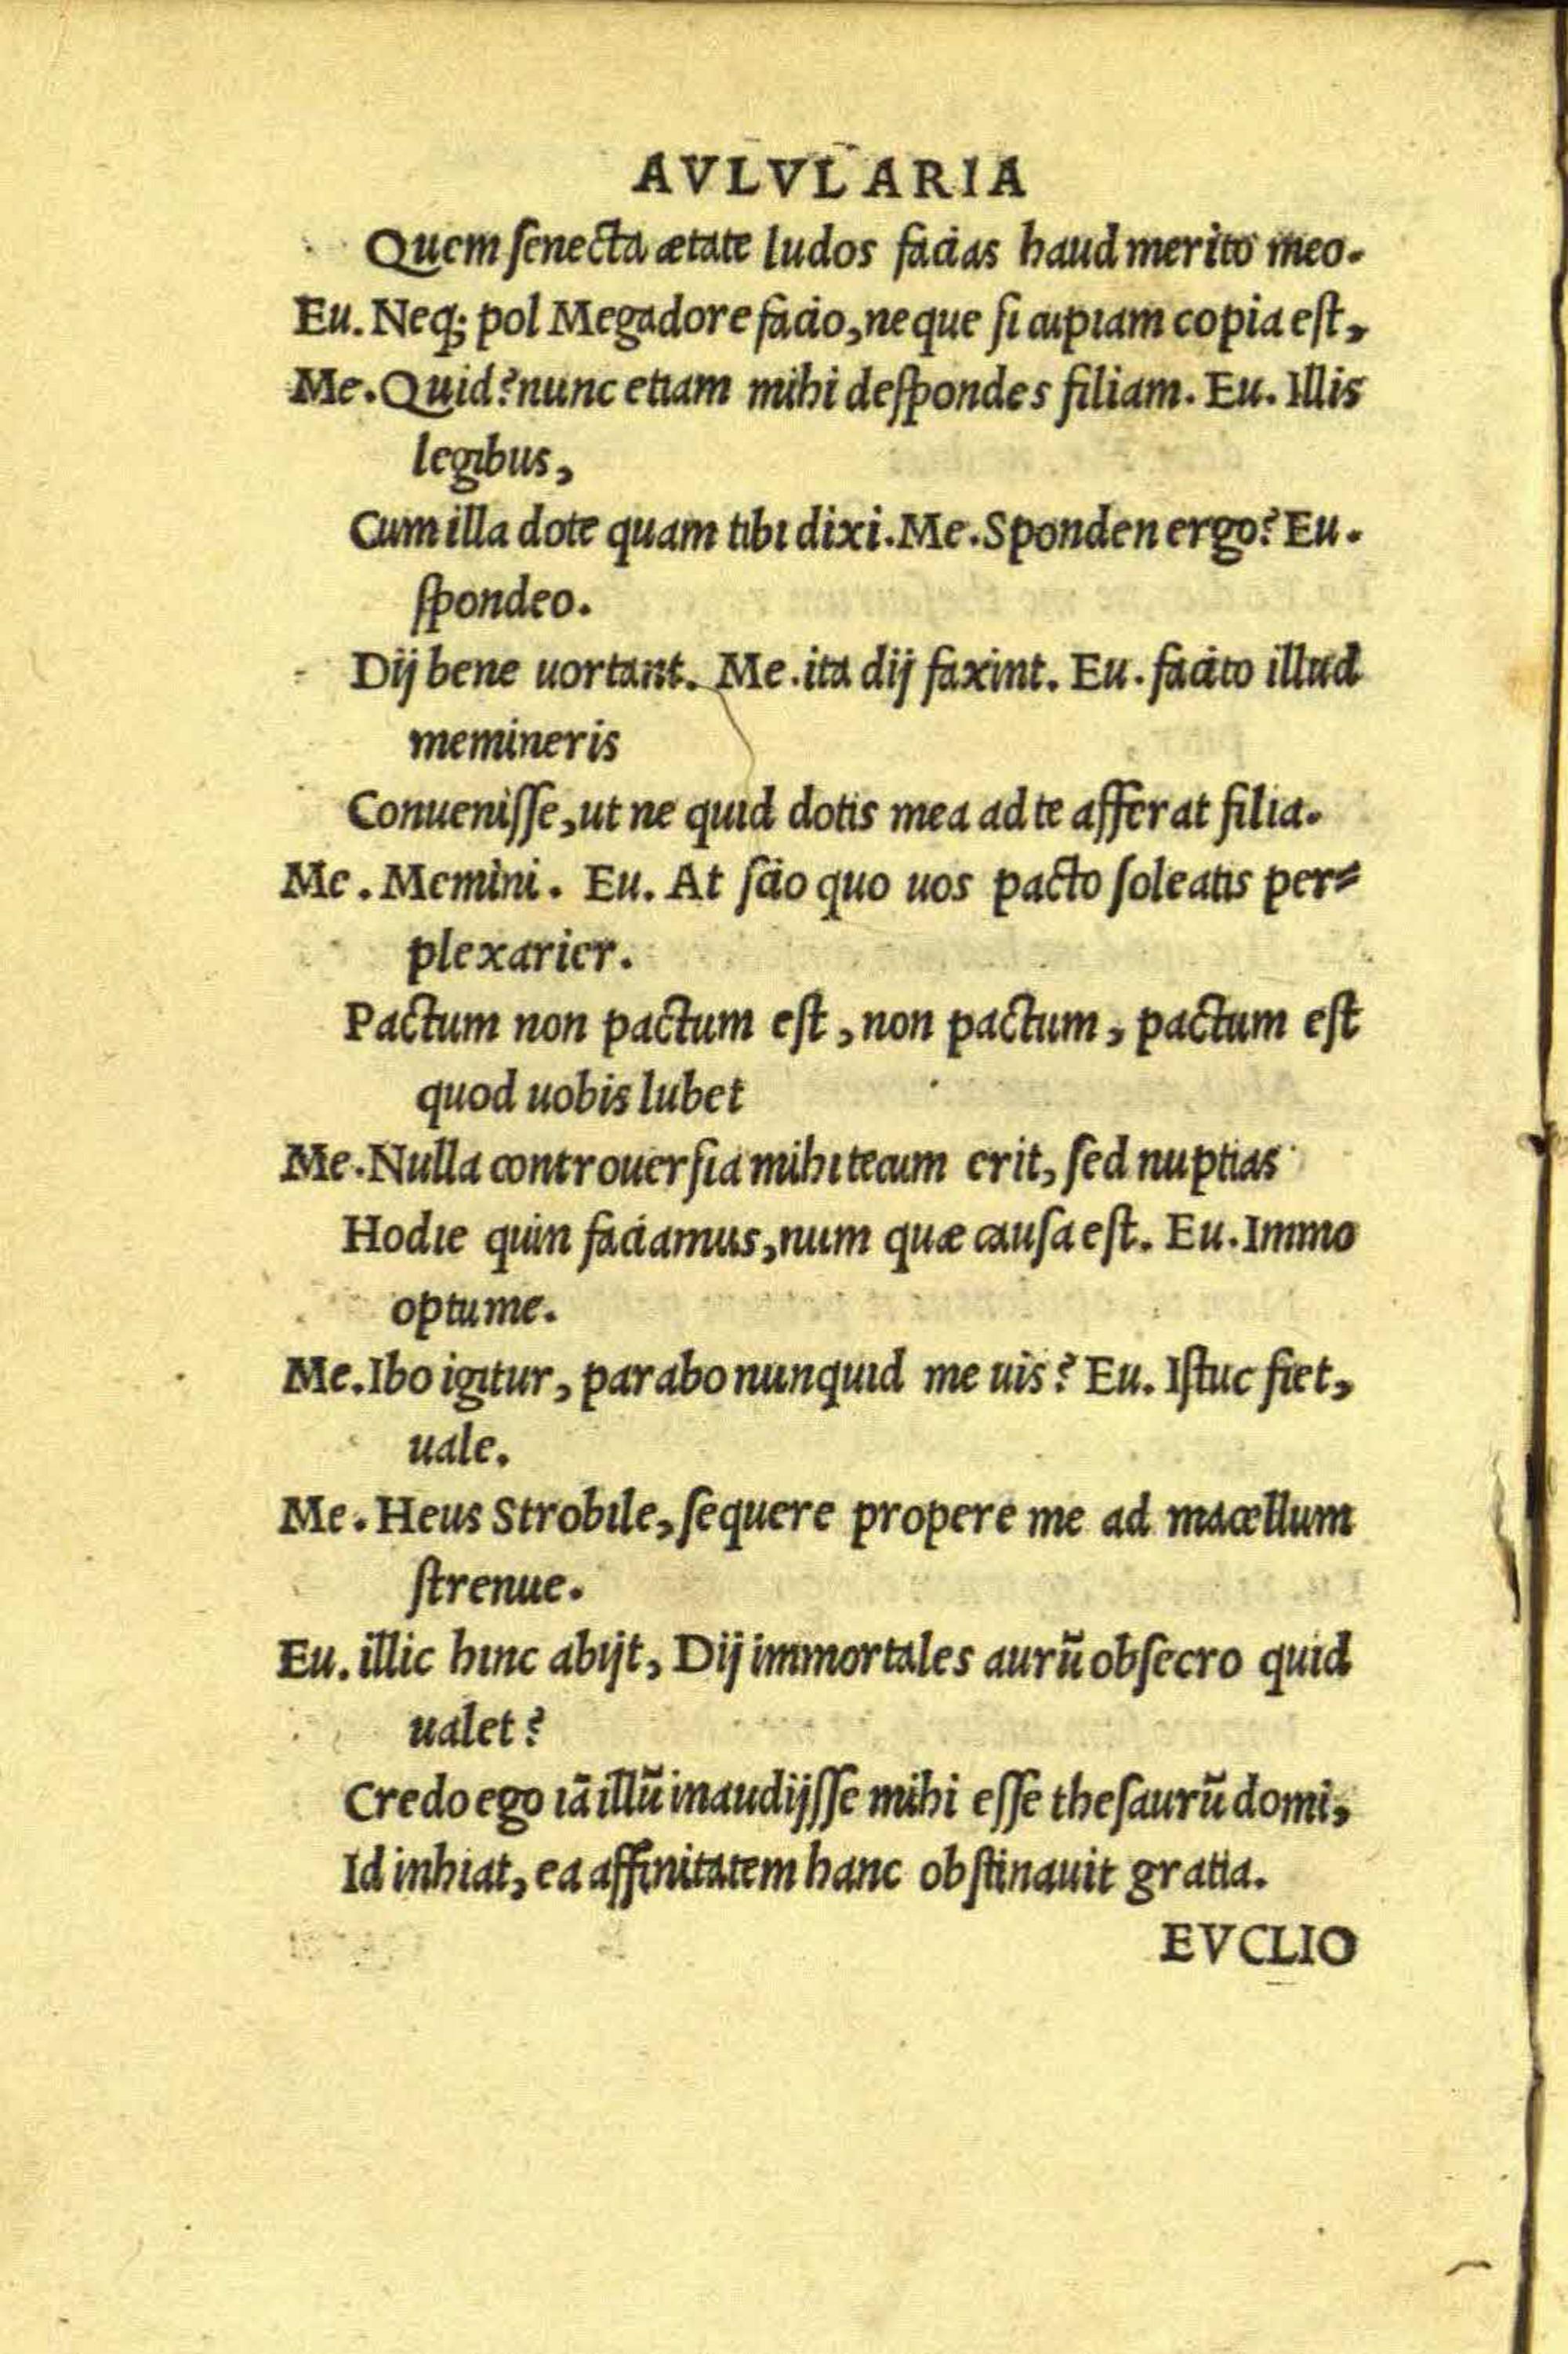 AVLVLARIA
Quem ſenecta ætate ludos facias haud merito meo.
Eu. Neq; pol Megadore facio, neque ſi cupiam copia eſt,
Me. Quid? nunc etiam mihi deſpondes filiam. Eu. Illis
legibus,
Cum illa dote quam tibi dixi. Me. Sponden ergo? Eu.
ſpondeo.
Dij bene uortant. Me. ita dij faxint. Eu. facito illud
memineris
Conueniſſe, ut ne quid dotis mea ad te afferat filia.
Me. Memini. Eu. At ſcio quo uos pacto ſoleatis per⸗
plexarier.
Pactum non pactum eſt, non pactum, pactum eſt
quod uobis lubet
Me. Nulla controuerſia mihi tecum erit, ſed nuptias
Hodie quin faciamus, num quæ cauſa eſt. Eu. Immo
optume.
Me. Ibo igitur, parabo nunquid me uis? Eu. Iſtuc fiet,
uale.
Me. Heus Strobile, ſequere propere me ad macellum
ſtrenue.
Eu. illic hinc abijt, Dij immortales aurũ obſecro quid
ualet?
Credo ego iã illũ inaudijſſe mihi eſſe theſaurũ domi,
Id inhiat, ea affinitatem hanc obſtinauit gratia.
EVCLIO